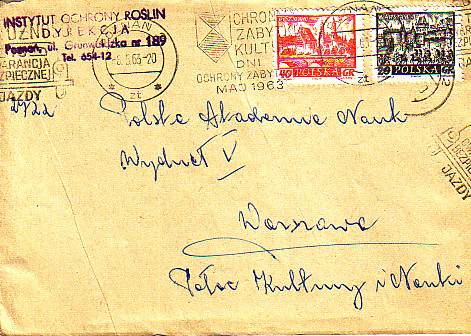 INSTYTUT OCHRONY ROŚLIN
DYREKCJA
Poznań, ul. Grunwaldzka nr 189
Tel. 654-12
GWARANCJA
BEZPIECZNEJ
JAZDY
-8.5.63-20
CHROŃ
ZABYTKI
KULTURY
DNI
OCHRONY ZABYTKÓW
MAJ 1963
40 POLSKA GR
20 POLSKA GR
Polska Akademia Nauk
Wydział V
Warszawa
Pałac Kultury i Nauki
JAZDY